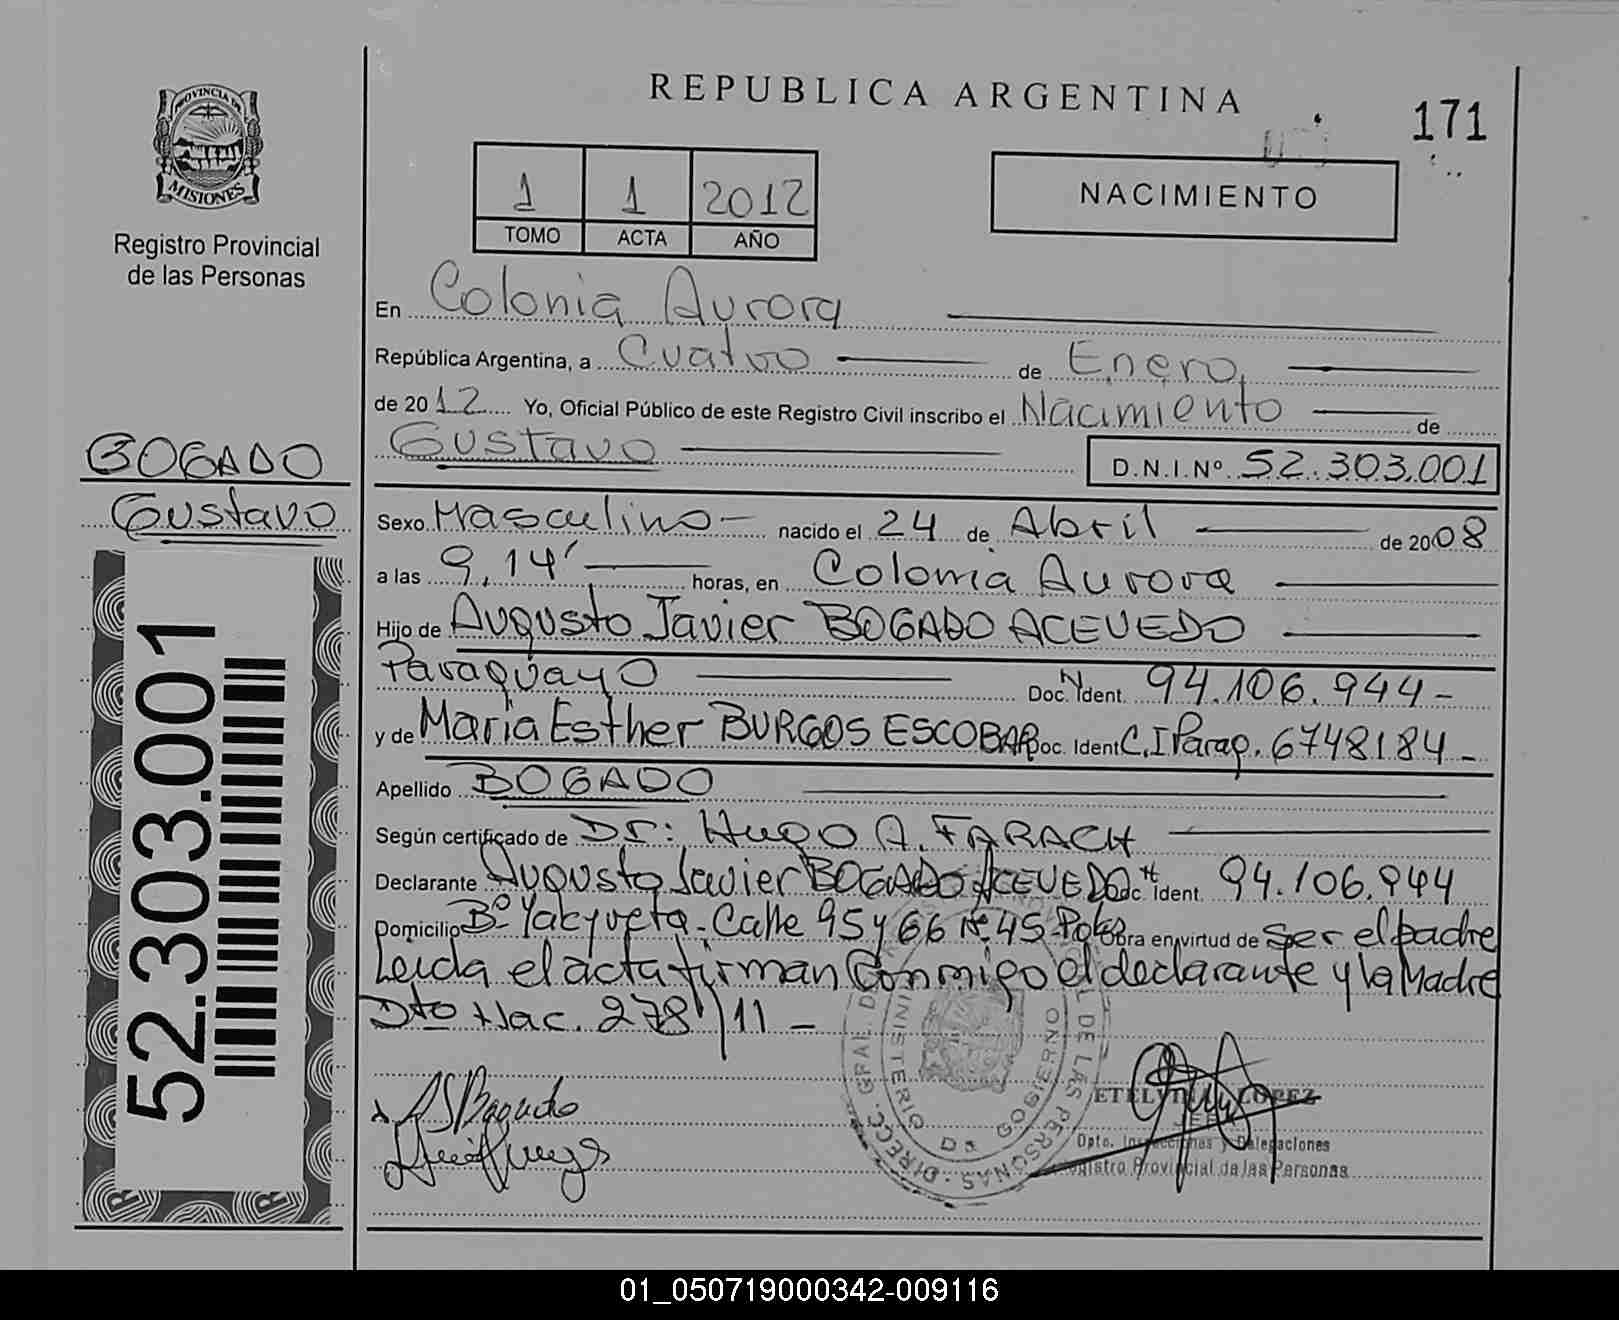 REPUBLICA ARGENTINA
171
PROVINCIA DE
MISIONES
Registro Provincial
de las Personas
1 1 2012
TOMO ACTA AÑO
NACIMIENTO
En Colonia Aurora
República Argentina, a Cuatro de Enero
de 2012 Yo, Oficial Público de este Registro Civil inscribo el Nacimiento de
Gustavo
D.N.I.Nº 52.303.001
BOGADO
Gustavo
52.303.001
Sexo Masculino - nacido el 24 de Abril de 2008
a las 9,14' horas, en Colonia Aurora
Hijo de Augusto Javier BOGADO ACEVEDO
Paraguayo Doc. Ident. 94.106.944-
y de Maria Esther BURGOS ESCOBAR Doc. Ident C.I Parag. 6748184-
Apellido BOGADO
Según certificado de Dr: Hugo A. FARACH
Declarante Augusto Javier BOGADO ACEVEDO Doc. Ident. 94.106.944
Domicilio Bº Yacyreta - Calle 95 y 66 Nº 45 - Obra en virtud de ser el padre
Leida el acta firman conmigo el declarante y la Madre
Dto Nac. 278/11 -
DIRECC. GRAL. DE LAS PERSONAS
MINISTERIO DE GOBIERNO
LOPEZ
Dpto. Inspecciones y Delegaciones
Registro Provincial de las Personas
01_050719000342-009116